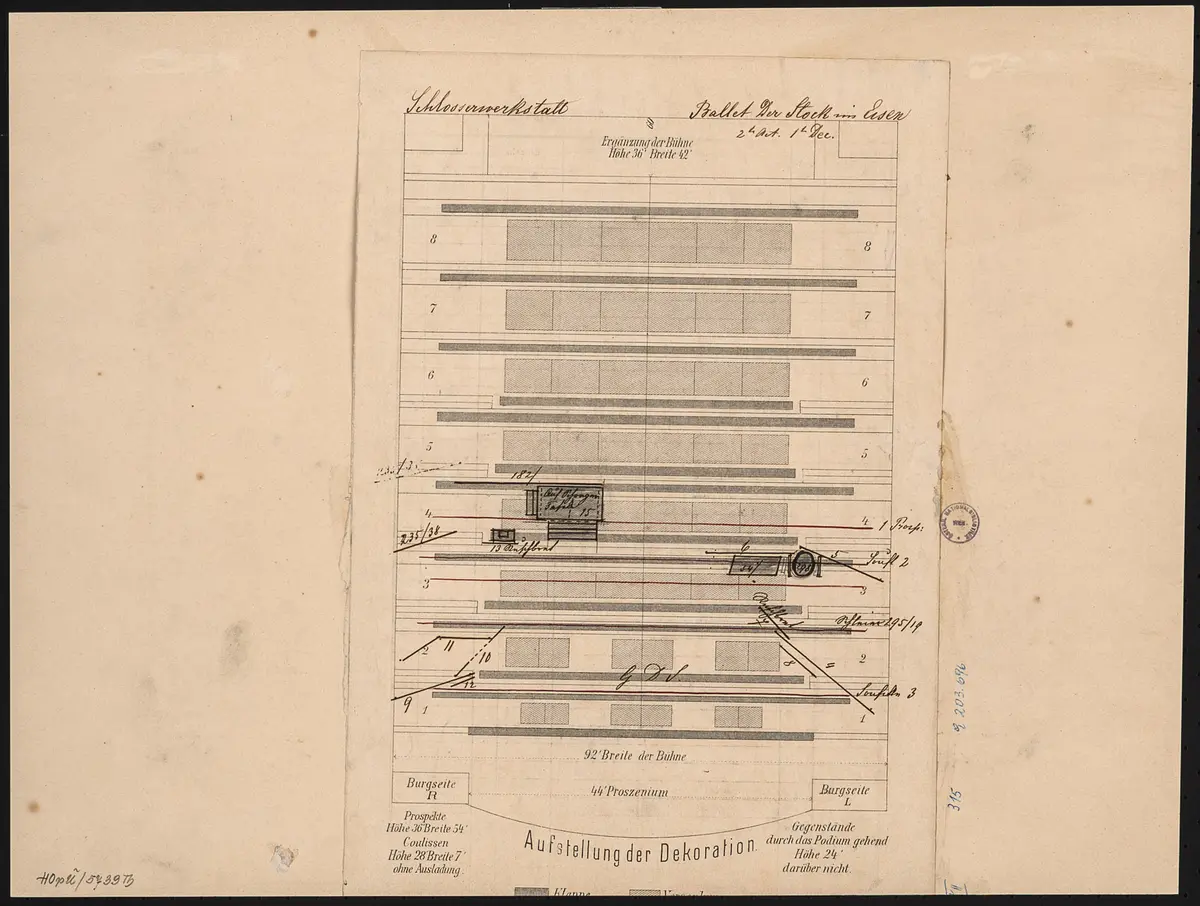 Schlosserwerkstatt
Ballet Der Stock im Eisen
2ter Act. 1te Dec.
Ergänzung der Bühne
Höhe 36' Breite 42'
8
8
7
7
6
6
5
5
182/
15
4
4
1 Prosp:
235/38
13
6
5
Souff 2
3
3
295/19
2
11
10
8
=
2
G D S.
12
9
Souffiten 3
1
1
92' Breite der Bühne
Burgseite
R
44' Proszenium
Burgseite
L
Prospekte
Höhe 36' Breite 54'
Coulissen
Höhe 28' Breite 7'
ohne Ausladung.
Aufstellung der Dekoration.
Gegenstände
durch das Podium gehend
Höhe 24'
darüber nicht.
Klappe
HOpÜ/5739 Th
315
9 203.696